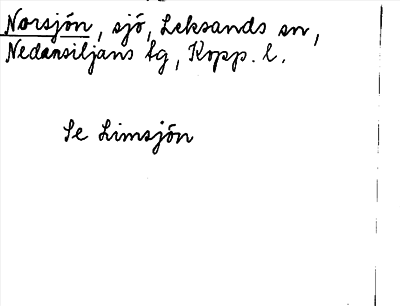 Norsjön, sjö, Leksands sn,
Nedansiljans tg, Kopp. l.
Se Limsjön